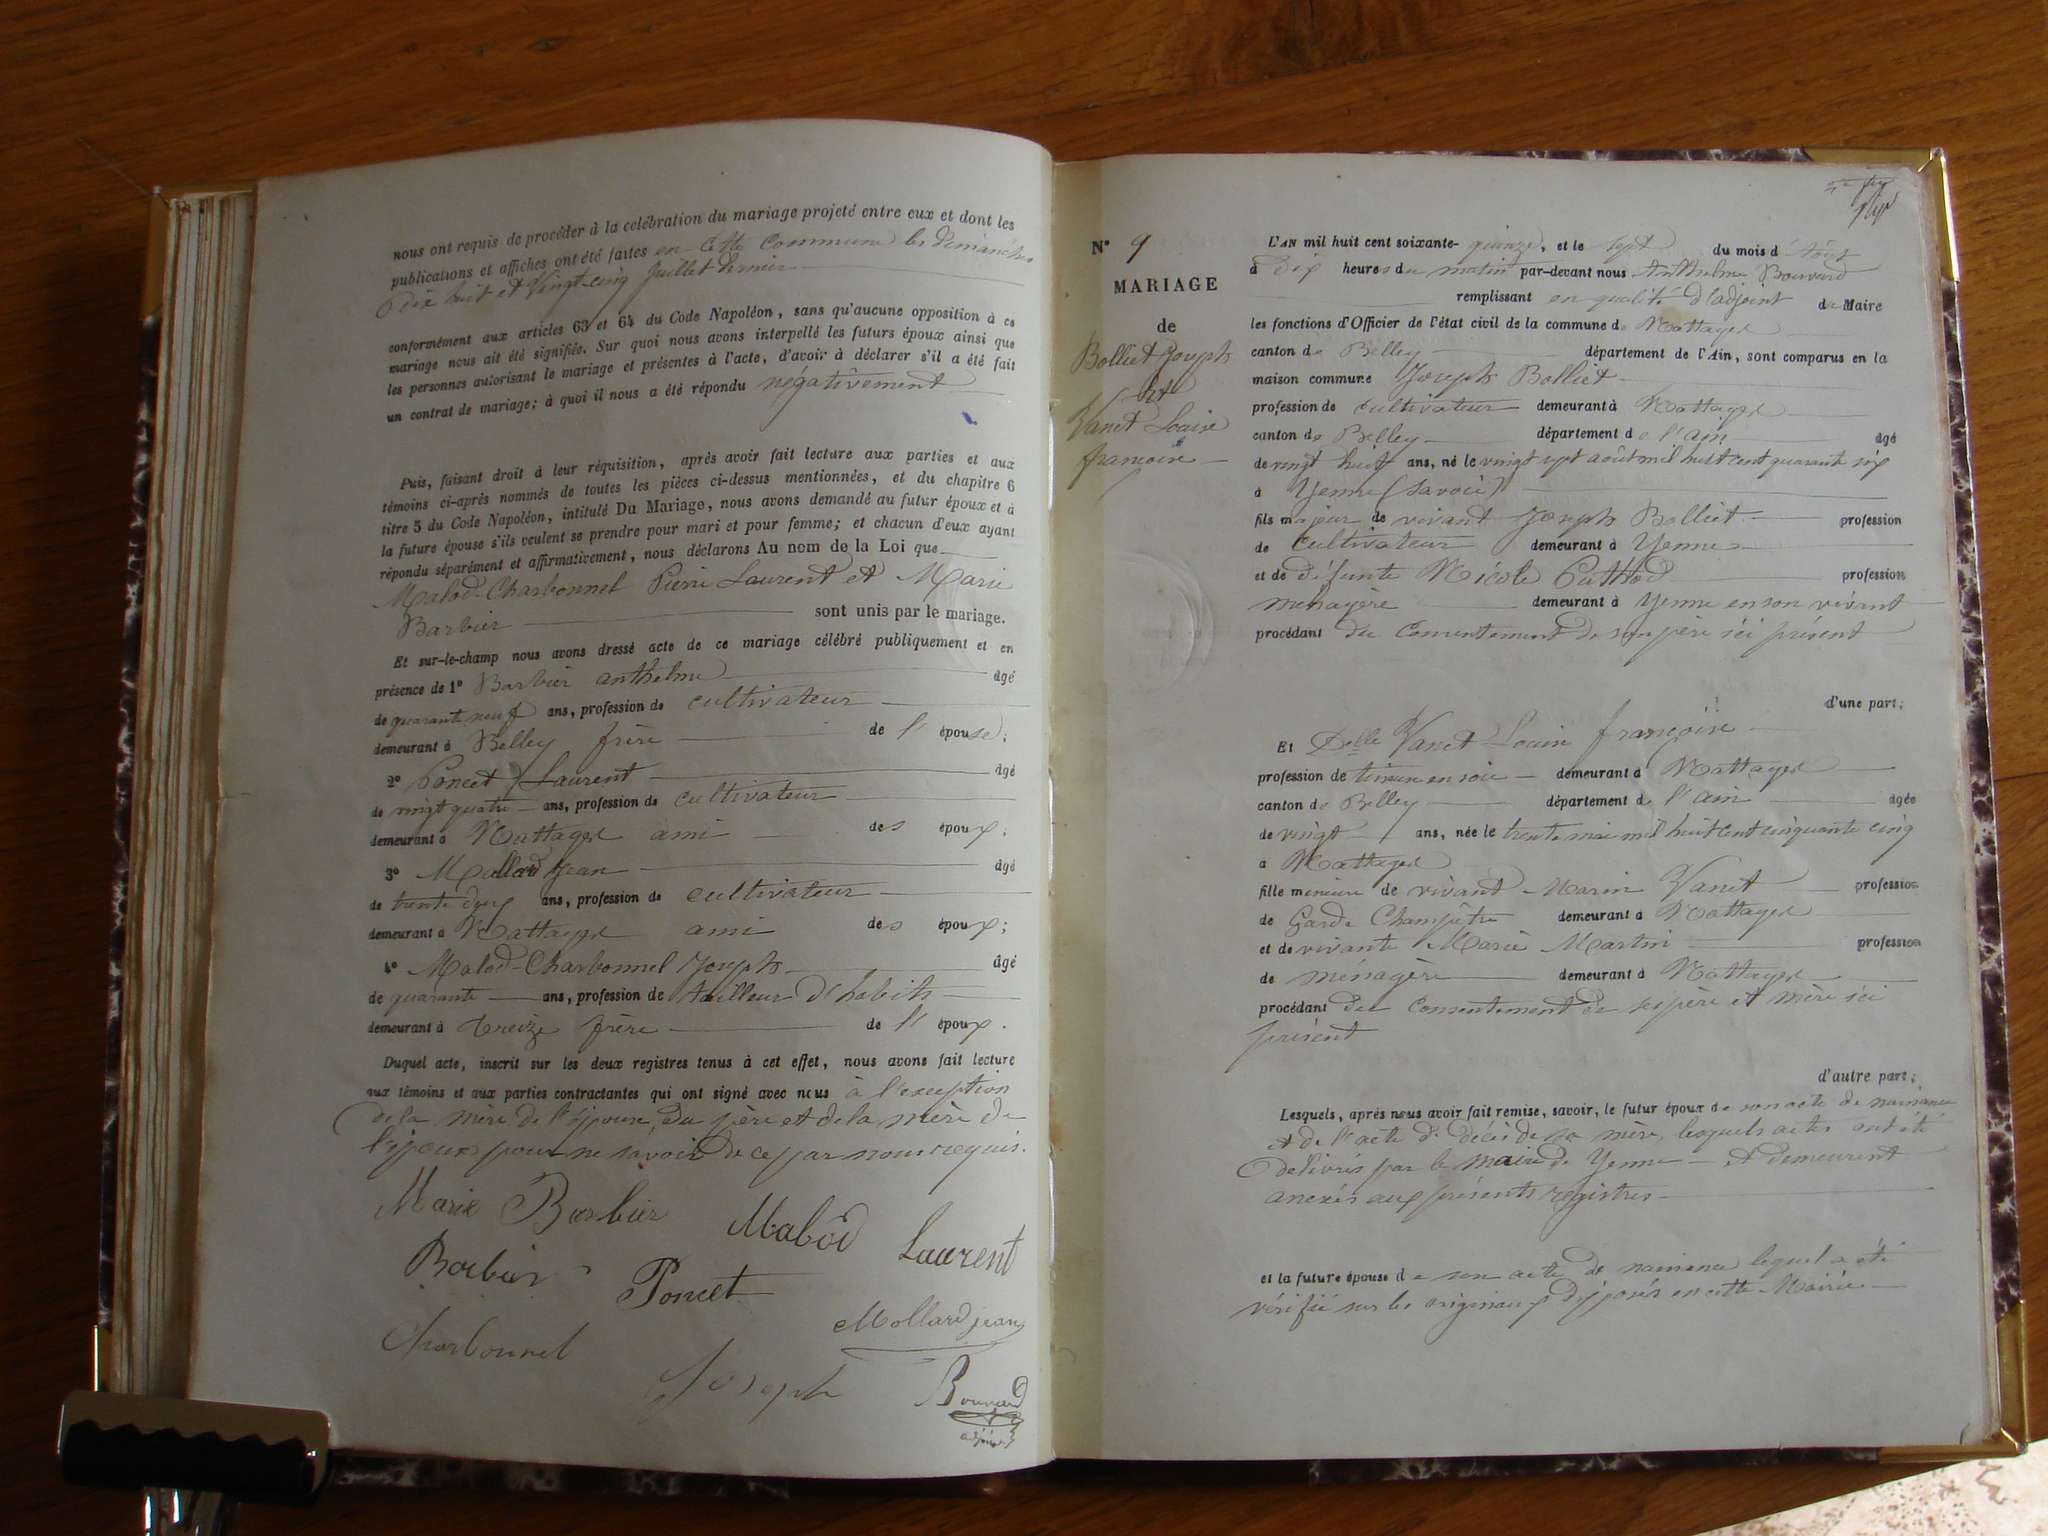 nous ont requis de procéder à la celébration du mariage projeté entre eux et dont les
publications et affiches ont été faites en Cette Commune les dimanches
Dix huit et Vingt-cinq Juillet dernier
conformément aux articles 63 et 64 du Code Napoléon, sans qu'aucune opposition à ce
mariage nous ait été signifiée. Sur quoi nous avons interpellé les futurs époux ainsi que
les personnes autorisant le mariage et présentes à l'acte, d'avoir à déclarer s'il a été fait
un contrat de mariage; à quoi il nous a été répondu négativement
Puis, faisant droit à leur réquisition, après avoir fait lecture aux parties et aux
témoins ci-après nommés de toutes les pièces ci-dessus mentionnées, et du chapitre 6
titre 5 du Code Napoléon, intitulé Du Mariage, nous avons demandé au futur époux et à
la future épouse s'ils veulent se prendre pour mari et pour femme; et chacun d'eux ayant
répondu séparément et affirmativement, nous déclarons Au nom de la Loi que
Malod-Charbonnel Pierre Laurent et Marie
Barbier sont unis par le mariage.
Et sur-le-champ nous avons dressé acte de ce mariage célébré publiquement et en
présence de 1º Barbier anthelme âgé
de quarante neuf ans, profession de cultivateur
demeurant à Belley frère de l' épouse;
2º Poncet Laurent âgé
de vingt quatre ans, profession de cultivateur
demeurant à Nattages ami des époux;
3º Mollard Jean âgé
de trente deux ans, profession de cultivateur
demeurant à Nattages ami des époux;
4º Malod-Charbonnel Joseph âgé
de quarante ans, profession de tailleur d'habits
demeurant à frère de l' époux.
Duquel acte, inscrit sur les deux registres tenus à cet effet, nous avons fait lecture
aux témoins et aux parties contractantes qui ont signé avec nous à l'exception
de la mère de l'épouse, du père et de la mère de
l'époux pour ne savoir de ce par nous requis.
Marie Barbier Malod Laurent
Barbier Poncet
Mollard jean
Charbonnel Joseph Bouvard
adjoint
Nº 9
MARIAGE
de
Bolliet Joseph
et
Vanet Louise
françoise
L'AN mil huit cent soixante-quinze, et le sept du mois d'Août
à Dix heures du matin par-devant nous Anthelme Bouvard
remplissant en qualité d'adjoint du Maire
les fonctions d'Officier de l'état civil de la commune de Nattages
canton de Belley département de l'Ain, sont comparus en la
maison commune Joseph Bolliet
profession de cultivateur demeurant à Nattages
canton de Belley département de l'ain âgé
de vingt huit ans, né le vingt sept août mil huit cent quarante six
à Yenne (Savoie)
fils majeur de vivant Joseph Bolliet profession
de Cultivateur demeurant à Yenne
et de défunte Nicole profession
ménagère demeurant à Yenne en son vivant
procédant du Consentement de son père ici présent
d'une part;
Et Delle Vanet Louise françoise
profession de tisseuse en soie demeurant à Nattages
canton de Belley département de l'ain âgée
de vingt ans, née le trente mai mil huit cent cinquante cinq
à Nattages
fille mineure de vivant Marin Vanet profession
de Garde Champêtre demeurant à Nattages
et de vivante Marie Martin profession
de ménagère demeurant à Nattages
procédant du Consentement de ses père et mère ici
présent
d'autre part;
Lesquels, après nous avoir fait remise, savoir, le futur époux de son acte de naissance
et de l'acte de décès de sa mère, lesquels actes ont été
délivrés par le maire de Yenne et demeurent
anexés aux présents registres
et la future épouse de son acte de naissance lequel a été
vérifié sur les originaux déposés en cette Mairie